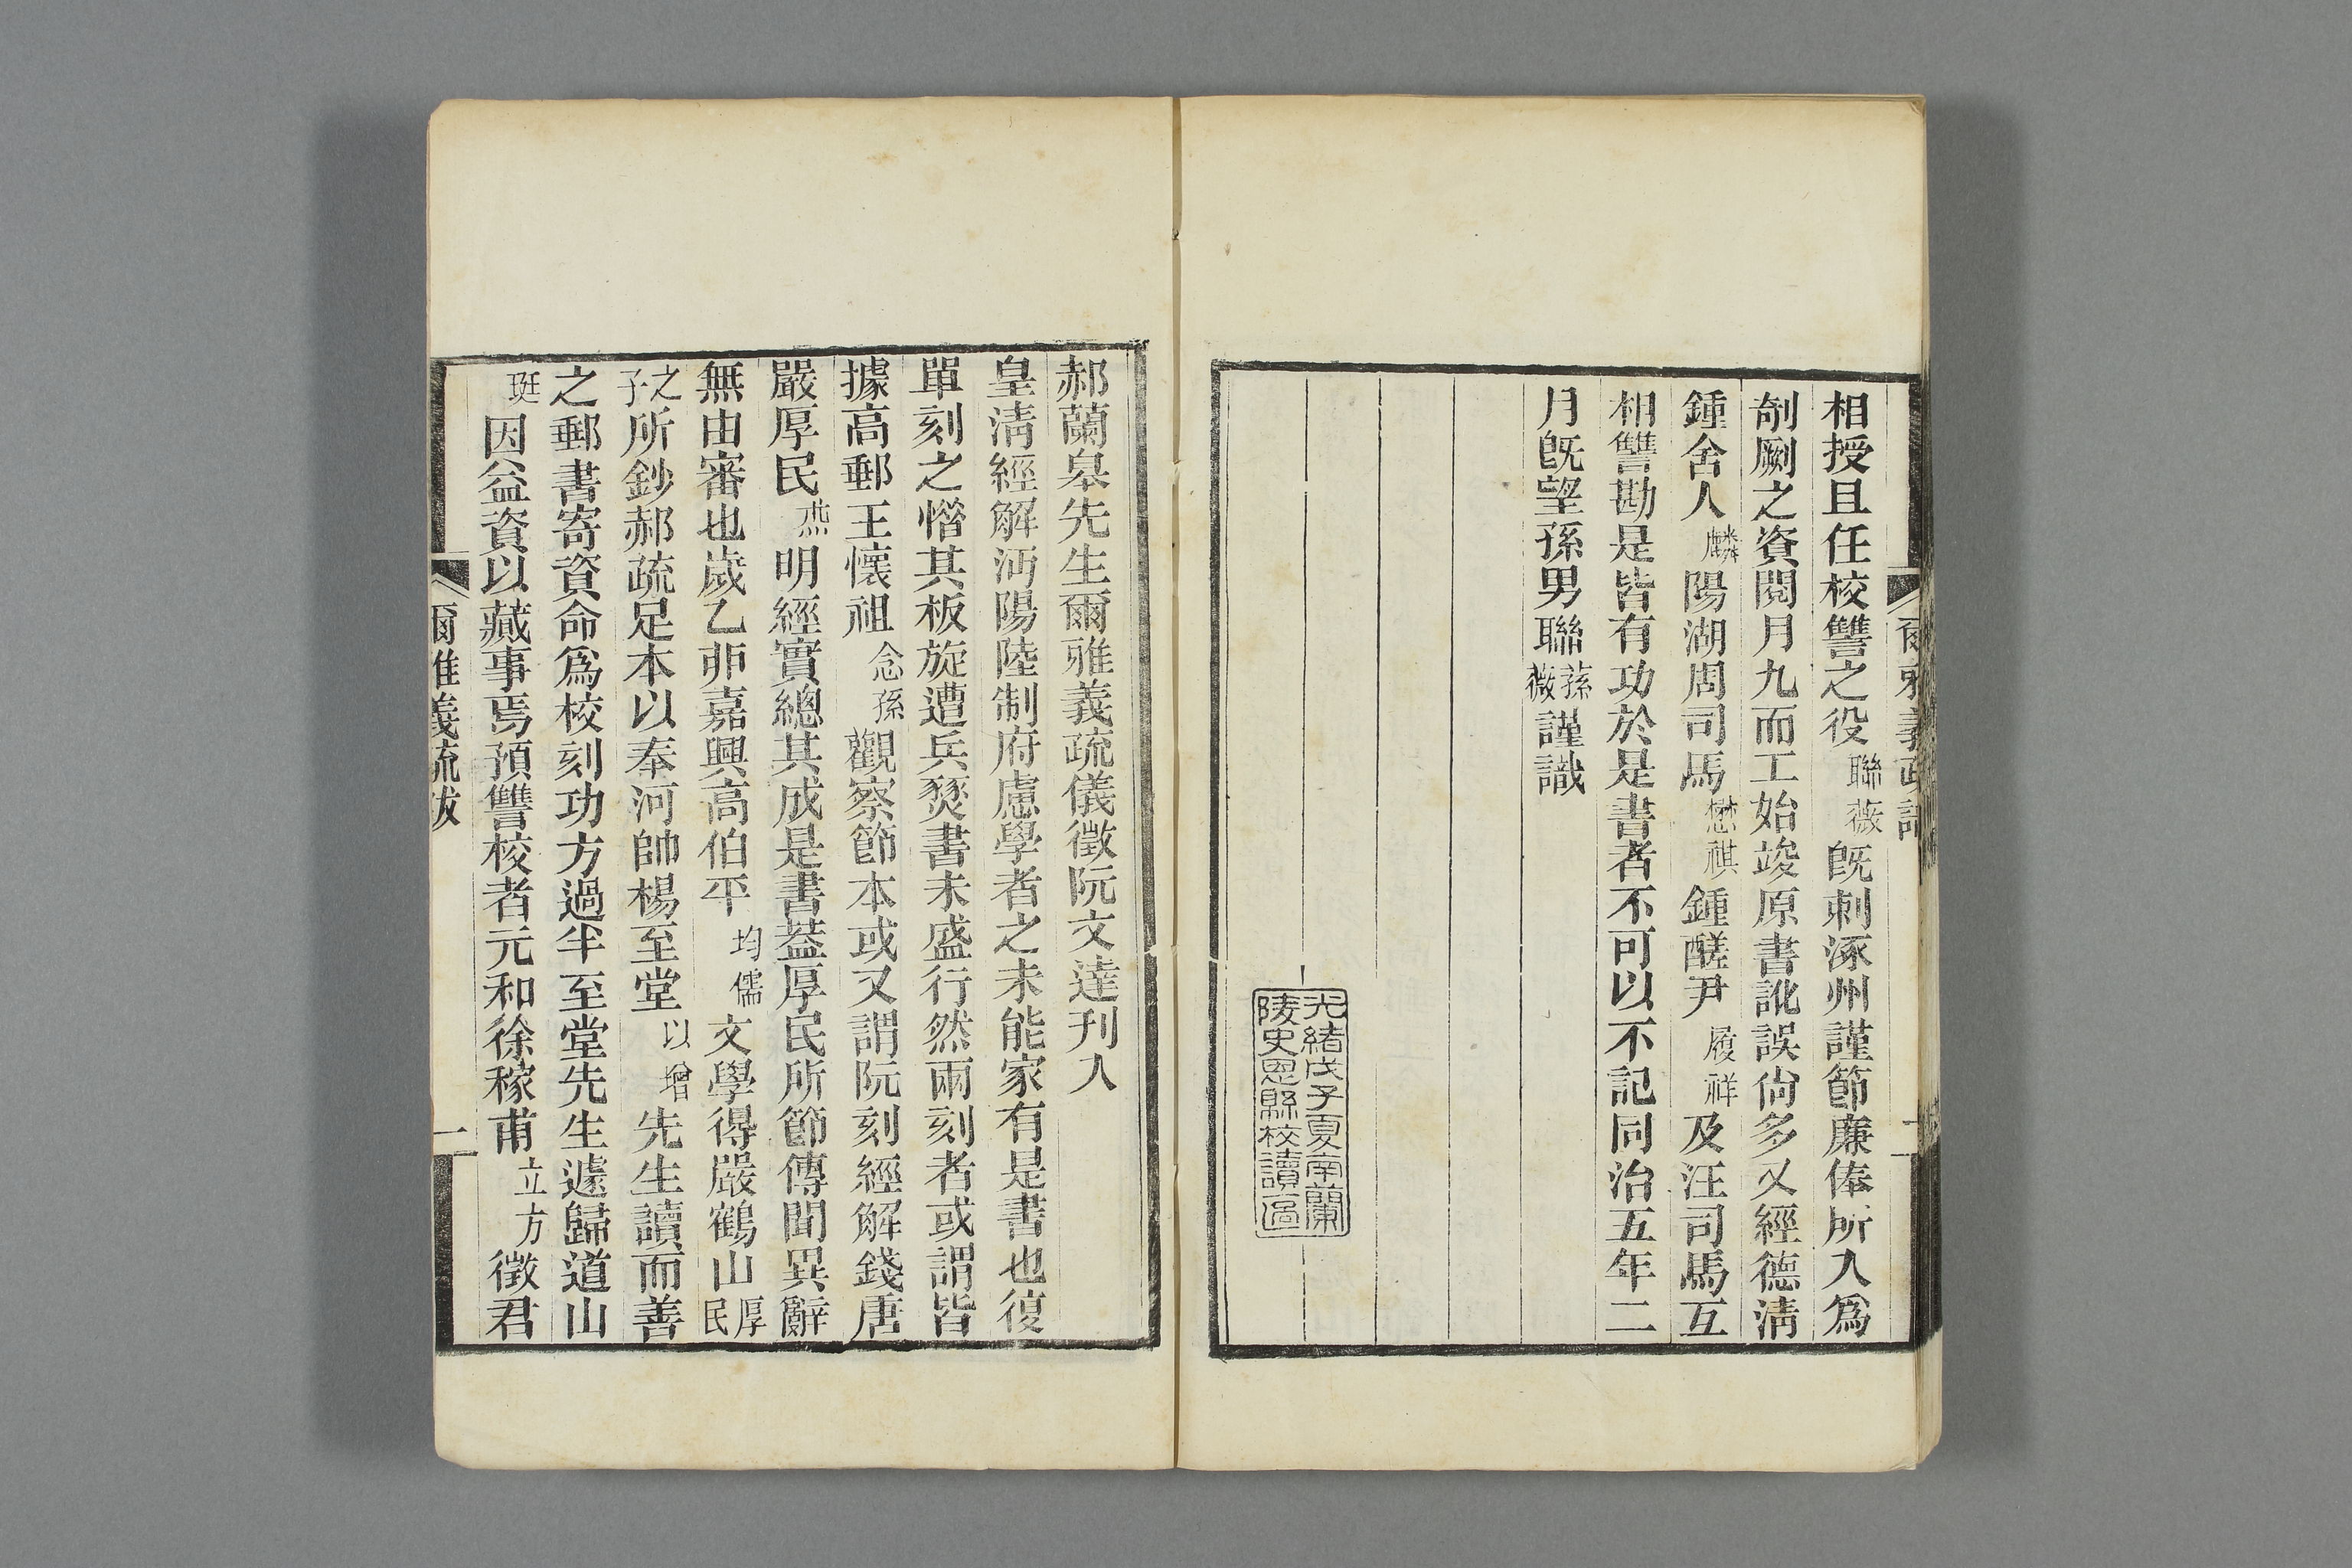 相授且任校讐之役聯薇旣刺涿州謹節廉俸所入爲
剞劂之資閱月九而工始竣原書訛誤尙多又經德淸
鍾舍人麟陽湖周司馬懋祺鍾醝尹履祥及汪司馬互
相讐勘是皆有功於是書者不可以不記同治五年二
月旣望孫男聯蓀薇謹識
光緒戊子夏南蘭
陵史恩縣校讀
郝蘭皋先生爾雅義疏儀徵阮文達刊入
皇淸經解沔陽陸制府慮學者之未能家有是書也復
單刻之惜其板旋遭兵燹書未盛行然兩刻者或謂皆
據高郵王懷祖念孫觀察節本或又謂阮刻經解錢唐
嚴厚民杰明經實總其成是書蓋厚民所節傳聞異辭
無由審也歲乙卯嘉興高伯平均儒文學得嚴鶴山厚民
之子所鈔郝疏足本以奉河帥楊至堂以增先生讀而善
之郵書寄資命爲校刻功方過半至堂先生遽歸道山
珽因益資以藏事焉預讐校者元和徐稼甫立方徵君
爾雅義疏跋
一